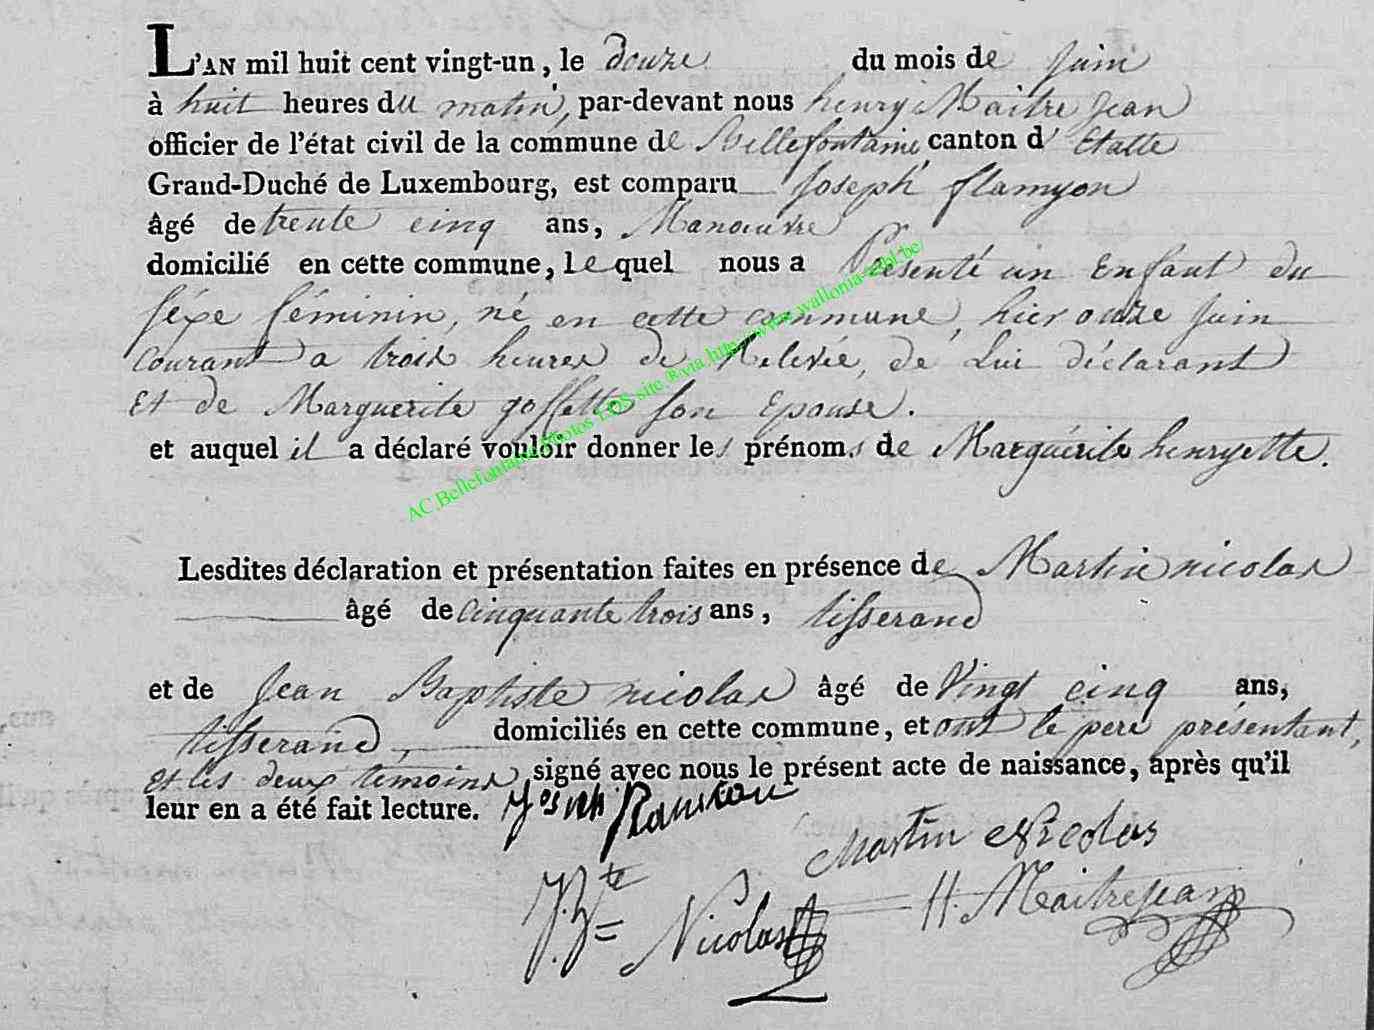 L'AN mil huit cent vingt-un, le douze du mois de Juin
à huit heures du matin, par-devant nous henry Maitre Jean
officier de l'état civil de la commune de Bellefontaine, canton d' Etalle
Grand-Duché de Luxembourg, est comparu Joseph flamyon
âgé de trente cinq ans, Manœuvre
domicilié en cette commune, lequel nous a Présenté un Enfant du
séxe féminin, né en cette commune, hier onze Juin
courant a trois heures de Relevée, de Lui déclarant
Et de Marguerite goffette son Epouse.
et auquel il a déclaré vouloir donner les prénoms de Marguérite henryette.
AC.Bellefontaine Photos LDS site ® via http://www.wallonia-asbl.be/
Lesdites déclaration et présentation faites en présence de Martin nicolas
âgé de cinquante trois ans, tisserand
et de Jean Baptiste nicolas âgé de Vingt cinq ans,
tisserand, domiciliés en cette commune, et ont le pere présentant,
et les deux témoins signé avec nous le présent acte de naissance, après qu'il
leur en a été fait lecture. Joseph flamion
Martin Nicolas
J.Bte Nicolas H. Maitrejean